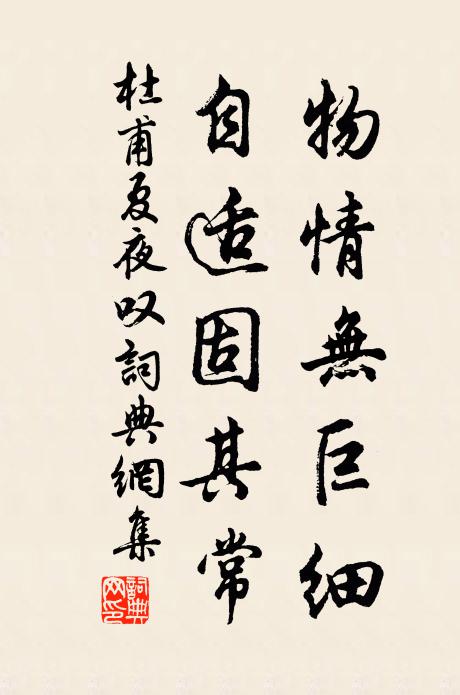 物情無巨细
自适固其常
杜甫夏夜叹詞典網集
詞典网印